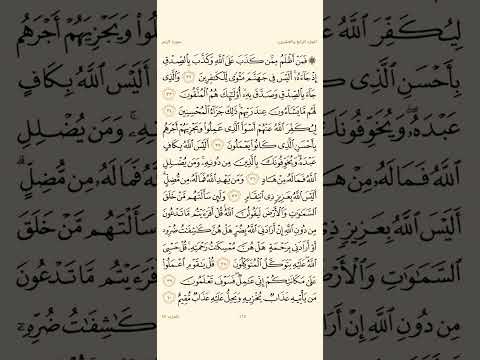 الجزء الرابع والعشرون سورة الزمر
۞ فَمَنۡ أَظۡلَمُ مِمَّن كَذَبَ عَلَى ٱللَّهِ وَكَذَّبَ بِٱلصِّدۡقِ
إِذۡ جَآءَهُۥٓۚ أَلَيۡسَ فِي جَهَنَّمَ مَثۡوٗى لِّلۡكَٰفِرِينَ ٣٢ وَٱلَّذِي
جَآءَ بِٱلصِّدۡقِ وَصَدَّقَ بِهِۦٓ أُوْلَٰٓئِكَ هُمُ ٱلۡمُتَّقُونَ ٣٣
لَهُم مَّا يَشَآءُونَ عِندَ رَبِّهِمۡۚ ذَٰلِكَ جَزَآءُ ٱلۡمُحۡسِنِينَ ٣٤
لِيُكَفِّرَ ٱللَّهُ عَنۡهُمۡ أَسۡوَأَ ٱلَّذِي عَمِلُواْ وَيَجۡزِيَهُمۡ أَجۡرَهُم
بِأَحۡسَنِ ٱلَّذِي كَانُواْ يَعۡمَلُونَ ٣٥ أَلَيۡسَ ٱللَّهُ بِكَافٍ
عَبۡدَهُۥۖ وَيُخَوِّفُونَكَ بِٱلَّذِينَ مِن دُونِهِۦۚ وَمَن يُضۡلِلِ
ٱللَّهُ فَمَا لَهُۥ مِنۡ هَادٖ ٣٦ وَمَن يَهۡدِ ٱللَّهُ فَمَا لَهُۥ مِن مُّضِلٍّۗ
أَلَيۡسَ ٱللَّهُ بِعَزِيزٖ ذِي ٱنتِقَامٖ ٣٧ وَلَئِن سَأَلۡتَهُم مَّنۡ خَلَقَ
ٱلسَّمَٰوَٰتِ وَٱلۡأَرۡضَ لَيَقُولُنَّ ٱللَّهُۚ قُلۡ أَفَرَءَيۡتُم مَّا تَدۡعُونَ
مِن دُونِ ٱللَّهِ إِنۡ أَرَادَنِيَ ٱللَّهُ بِضُرٍّ هَلۡ هُنَّ كَٰشِفَٰتُ ضُرِّهِۦٓ
أَوۡ أَرَادَنِي بِرَحۡمَةٍ هَلۡ هُنَّ مُمۡسِكَٰتُ رَحۡمَتِهِۦۚ قُلۡ حَسۡبِيَ
ٱللَّهُۖ عَلَيۡهِ يَتَوَكَّلُ ٱلۡمُتَوَكِّلُونَ ٣٨ قُلۡ يَٰقَوۡمِ ٱعۡمَلُواْ
عَلَىٰ مَكَانَتِكُمۡ إِنِّي عَٰمِلٞۖ فَسَوۡفَ تَعۡلَمُونَ ٣٩
مَن يَأۡتِيهِ عَذَابٞ يُخۡزِيهِ وَيَحِلُّ عَلَيۡهِ عَذَابٞ مُّقِيمٌ ٤٠